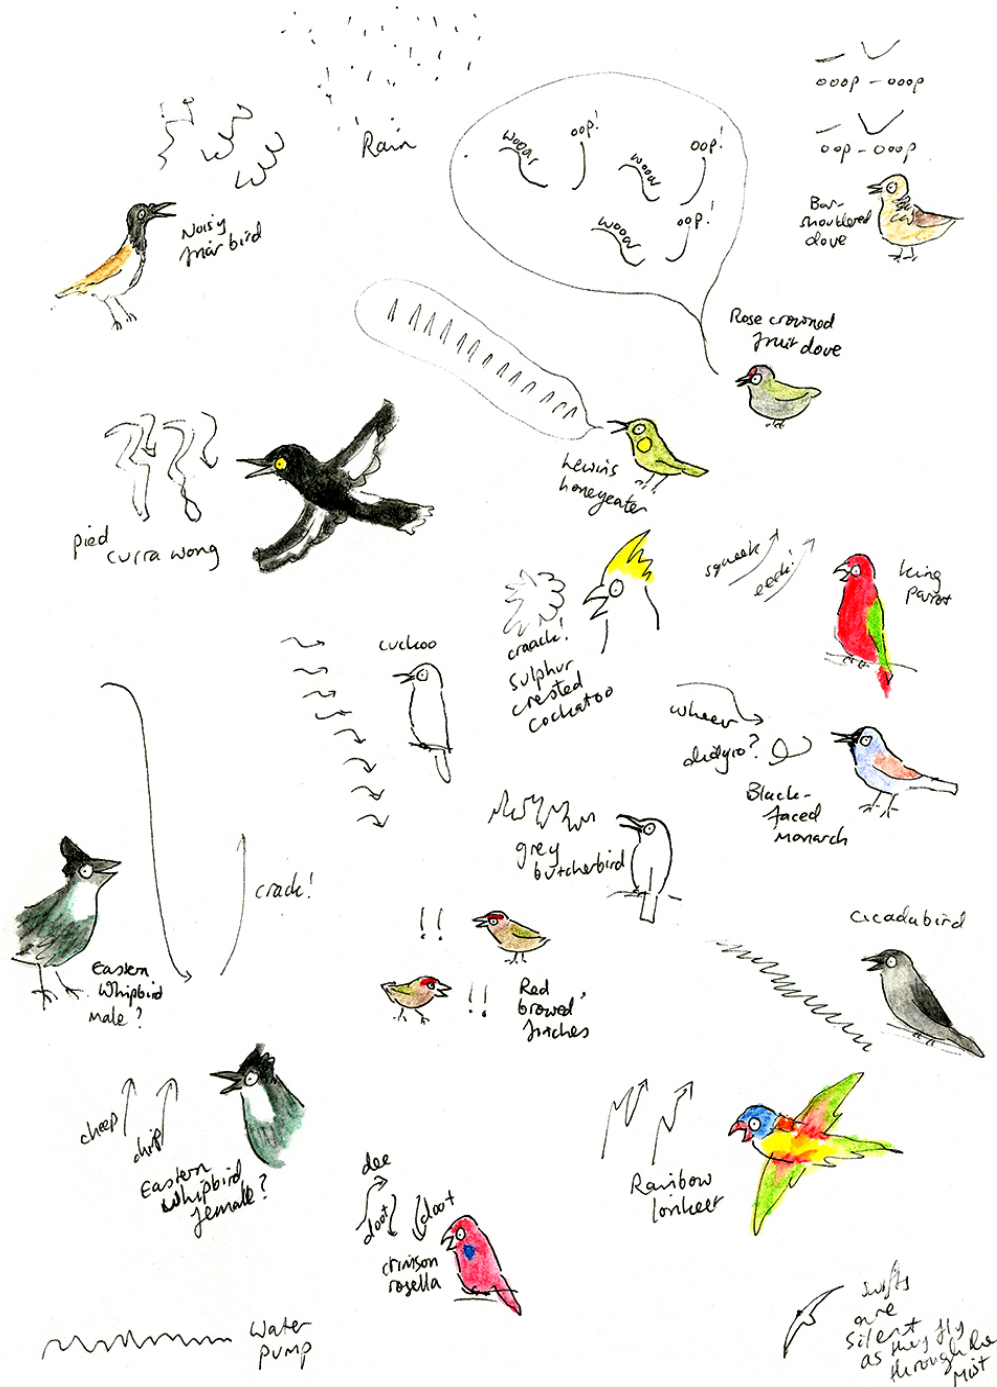 Rain
ooop - ooop
oop - ooop
Bar-
shouldered
dove
wooar
oop!
wooar
oop!
wooar
oop!
Noisy
friar bird
Rose crowned
fruit dove
Lewins
honeyeater
pied
curra wong
craack!
Sulphur
crested
Cockatoo
squeek
eeek!
King
Parrot
cuckoo
wheer
didyro?
Black-
faced
Monarch
grey
butcherbird
crack!
Eastern
Whipbird
male?
!!
!!
Red
browed
finches
Cicadabird
cheep
chip
Eastern
Whipbird
female?
dee
doot
doot
crimson
rosella
Rainbow
lorikeet
Water
pump
swifts
are
silent
as they fly
through the
Mist